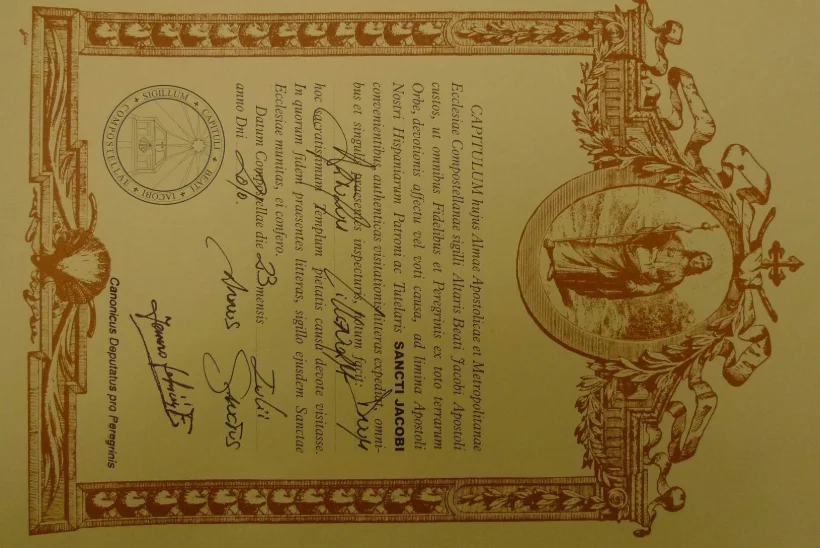 CAPITULUM hujus Almae Apostolicae et Metropolitanae
Ecclesiae Compostellanae sigilli Altaris Beati Jacobi Apostoli
custos, ut omnibus Fidelibus et Peregrinis ex toto terrarum
Orbe, devotionis affectu vel voti causa, ad limina Apostoli
Nostri Hispaniarum Patroni ac Tutelaris SANCTI JACOBI
convenientibus, authenticas visitationis litteras expediat, omni-
bus et singulis praesentes inspecturis, notum facit:
hoc sacratissimum Templum pietatis causa devote visitasse.
In quorum fidem praesentes litteras, sigillo ejusdem Sanctae
Ecclesiae munitas, ei confero.
Datum Compostellae die 23 mensis Julii
anno Dni 2010.
Annus Sanctus
Canonicus Deputatus pro Peregrinis
SIGILLUM CAPITULI BEATI JACOBI COMPOSTELLAE